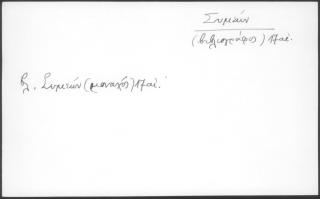 Συμεών
(βιβλιογράφος) 17 αἰ.
βλ. Συμεών (μοναχός) 17 αἰ.